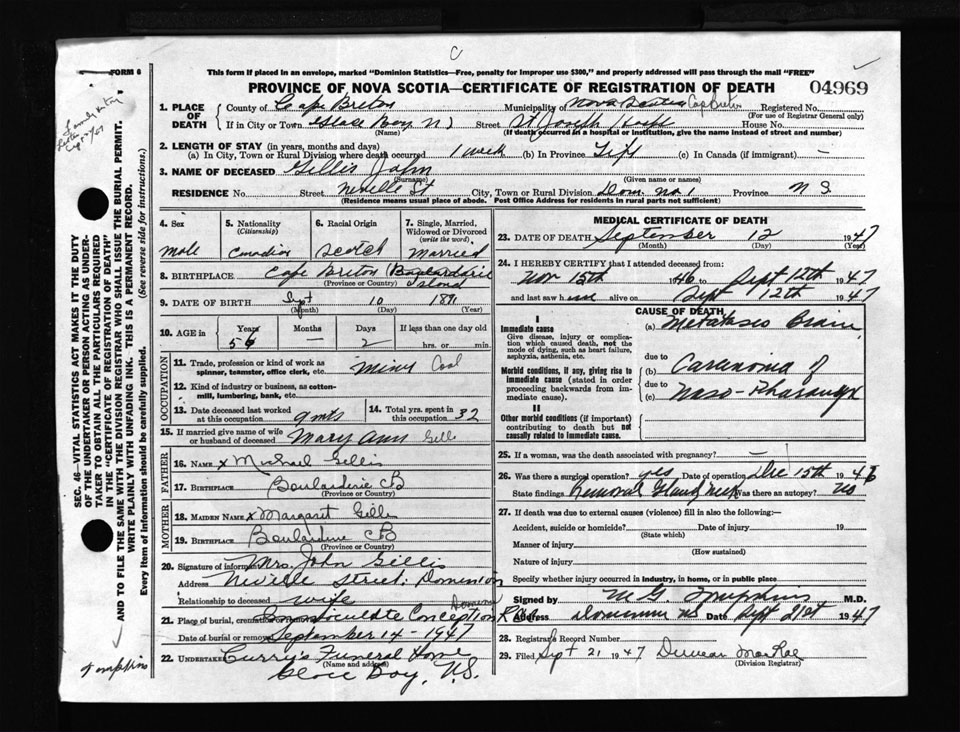 C
FORM 6
This form if placed in an envelope, marked "Dominion Statistics—Free, penalty for improper use $300," and properly addressed will pass through the mail "FREE"
PROVINCE OF NOVA SCOTIA—CERTIFICATE OF REGISTRATION OF DEATH
04969
1. PLACE OF DEATH
County of Cape Breton Municipality of Nova Scotia Cape Breton Registered No.
(For use of Registrar General only)
If in City or Town Glace Bay N S Street St Joseph House No.
(Name) (If death occurred in a hospital or institution, give name instead of street and number)
2. LENGTH OF STAY (in years, months and days)
(a) In City, Town or Rural Division where death occurred 1 week (b) In Province Life (c) In Canada (if immigrant) —
3. NAME OF DECEASED Gillis John
(Surname) (Given name or names)
RESIDENCE No. Street Neville St City, Town or Rural Division Dom. No 1 Province N S
(Residence means usual place of abode. Post Office Address for residents in rural parts not sufficient)
4. Sex 5. Nationality (Citizenship) 6. Racial Origin 7. Single, Married, Widowed or Divorced (write the word)
Male Canadian Scotch Married
8. BIRTHPLACE Cape Breton (Boulardarie Island
(Province or Country)
9. DATE OF BIRTH Sept 10 1891
(Month) (Day) (Year)
10. AGE in Years Months Days If less than one day old
56 — 2 hrs. or min.
OCCUPATION
11. Trade, profession or kind of work as spinner, teamster, office clerk, etc. Miner Coal
12. Kind of industry or business, as cotton-mill, lumbering, bank, etc.
13. Date deceased last worked at this occupation 9 mts 14. Total yrs. spent in this occupation 32
15. If married give name of wife or husband of deceased Mary Ann Gillis
FATHER
16. NAME x Michael Gillis
17. BIRTHPLACE Boularderie CB
(Province or Country)
MOTHER
18. MAIDEN NAME x Margaret Gillis
19. BIRTHPLACE Boularderie CB
(Province or Country)
20. Signature of informant Mrs. John Gillis
Address Neville Street, Dominion
Relationship to deceased wife
21. Place of burial, cremation Immaculate Conception Dominion
Date of burial or removal September 14 - 1947
22. UNDERTAKER Curry's Funeral Home
(Name and address)
Glace Bay, N.S.
MEDICAL CERTIFICATE OF DEATH
23. DATE OF DEATH September 12 1947
(Month) (Day) (Year)
24. I HEREBY CERTIFY that I attended deceased from:
Nov 15th 1946 to Sept 12th 1947
and last saw him alive on Sept 12th 1947
CAUSE OF DEATH
I
Immediate cause
Give disease, injury or complication which caused death, not the mode of dying, such as heart failure, asphyxia, asthenia, etc.
(a) Metatases Brain
due to
Morbid conditions, if any, giving rise to immediate cause (stated in order proceeding backwards from immediate).
(b) Carcinoma of
due to
(c) Naso-Pharangx
II
Other morbid conditions (if important) contributing to death but not causally related to immediate cause.
25. If a woman, was the death associated with pregnancy? —
26. Was there a surgical operation? yes Date of operation Dec 15th 1946
State findings Removal Gland neck Was there an autopsy? no
27. If death was due to external causes (violence) fill in also the following:—
Accident, suicide or homicide? Date of injury 19
(State which)
Manner of injury
(How sustained)
Nature of injury
Specify whether injury occurred in industry, in home, or in public place
Signed by M. G. Tompkins M.D.
Address Dominion NS Date Sept 21st 1947
28. Registrar's Record Number
29. Filed Sept 21 1947 Duncan MacRae
(Division Registrar)
SEC. 46—VITAL STATISTICS ACT MAKES IT THE DUTY OF THE UNDERTAKER OR PERSON ACTING AS UNDERTAKER TO OBTAIN ALL THE PARTICULARS REQUIRED IN THE "CERTIFICATE OF REGISTRATION OF DEATH" AND TO FILE THE SAME WITH THE DIVISION REGISTRAR WHO SHALL ISSUE THE BURIAL PERMIT.
WRITE PLAINLY WITH UNFADING INK. THIS IS A PERMANENT RECORD.
Every item of information should be carefully supplied. (See reverse side for instructions.)
Tompkins